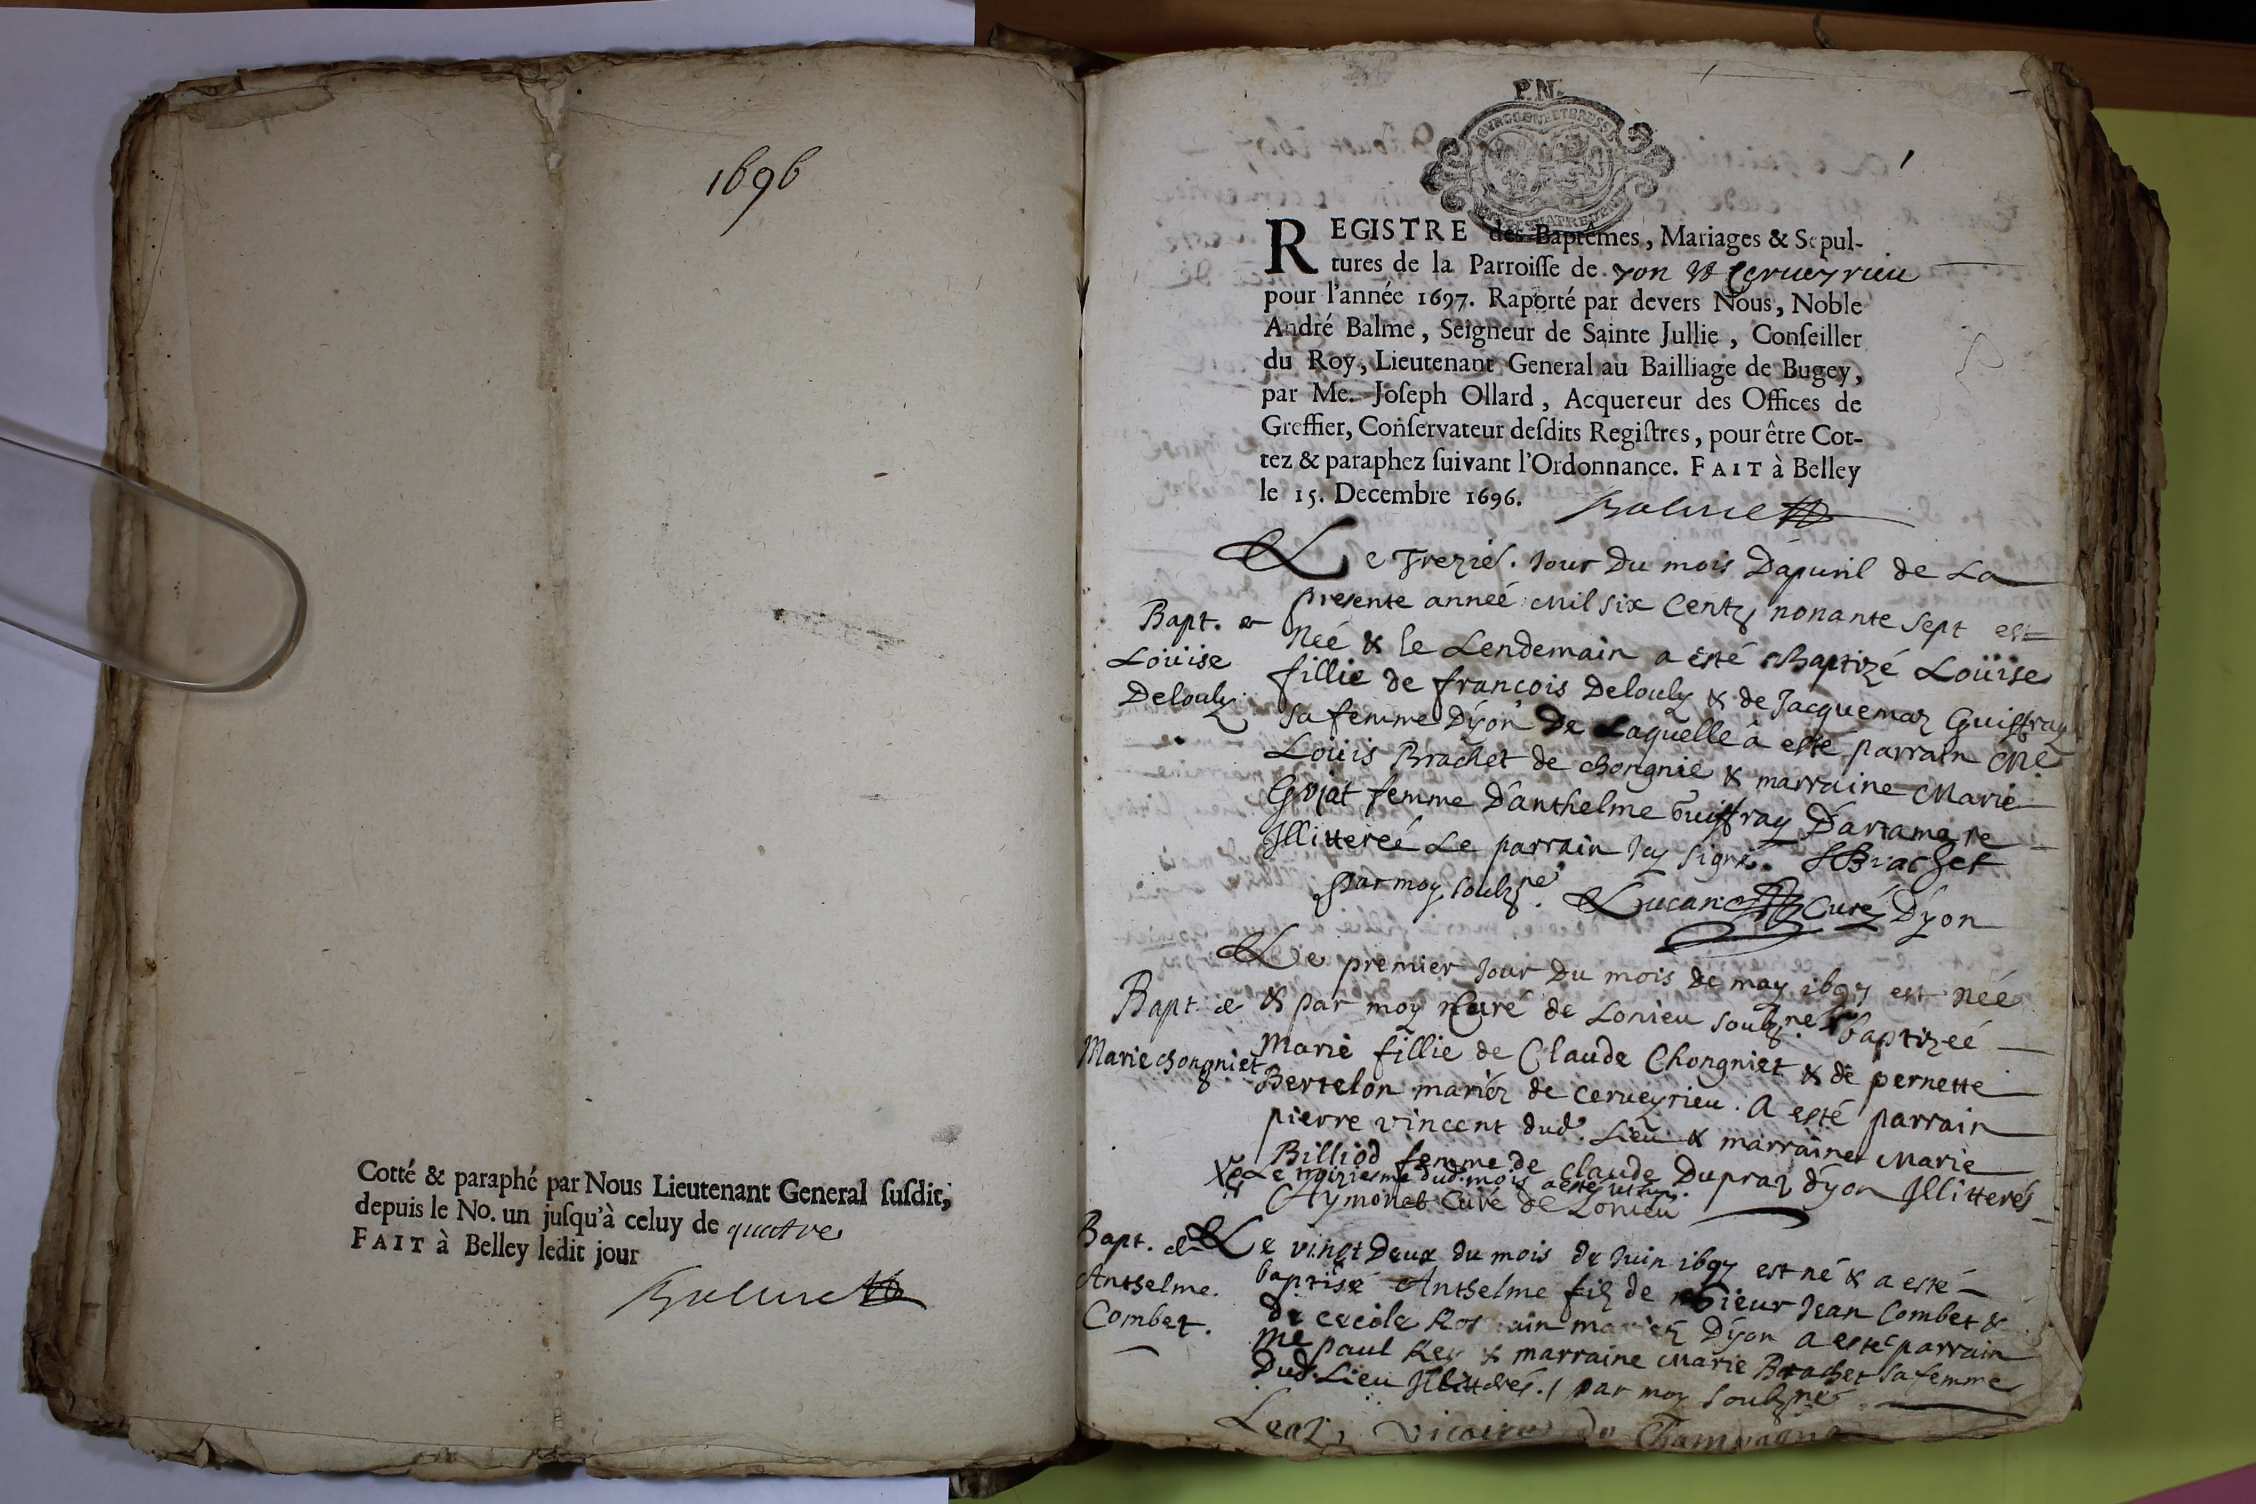 1696
Cotté & paraphé par Nous Lieutenant General suſdit,
depuis le No. un juſqu'à celuy de quatre
FAIT à Belley ledit jour
Balme
P.N.
1
REGISTRE des Baptêmes, Mariages & Sepul-
tures de la Parroiſſe de yon & Cerveyrieu
pour l'année 1697. Raporté par devers Nous, Noble
André Balme, Seigneur de Sainte Jullie, Conſeiller
du Roy, Lieutenant General au Bailliage de Bugey,
par Me. Joſeph Ollard, Acquereur des Offices de
Greffier, Conſervateur deſdits Regiſtres, pour être Cot-
tez & paraphez ſuivant l'Ordonnance. FAIT à Belley
le 15. Decembre 1696.
Balme
Le Trezie. Jour Du mois D'apuril de La
presente année Mil six Centz nonante sept est
Bapt. de
Loüise
Delouly.
Née & le Lendemain a esté Baptizé Loüise
fillie de françois Delouly & de Jacquemaz Guiffray
sa femme D'yon De Laquelle a esté parrain Me
Loüis Brachet de chongnie & marraine Marie
Gojat femme D'anthelme Guiffray D'artamare
Jllittereé Le parrain Jcy signé. LBrachet
par moy soubzne. Lucan Curé D'yon
Le premier Jour Du mois de may 1697 est née
Bapt. de
Marie chongniet
& par moy Curé de Lonieu soubzne. baptizeé
Marie fillie de Claude Chongniet & de pernette
Bertelon mariéz de cerueyrieu. A esté parrain
pierre vincent dud. Lieu & marraine Marie
Billiod femme de claude Dupraz d'yon Jllitterés
Le troiziesme dud. mois a esté
Aymonet Curé de Lonieu
Bapt. de
Anthelme.
Combet.
Le vingt Deux du mois de Juin 1697 est né & a esté
baptisé Anthelme filz de sieur Jean Combet &
de cecile mariez D'yon a esté parrain
Me paul Rey & marraine Marie Brachet sa femme
Dud. Lieu Jllitterés. / par moy soubzné
vicaire de Champagne